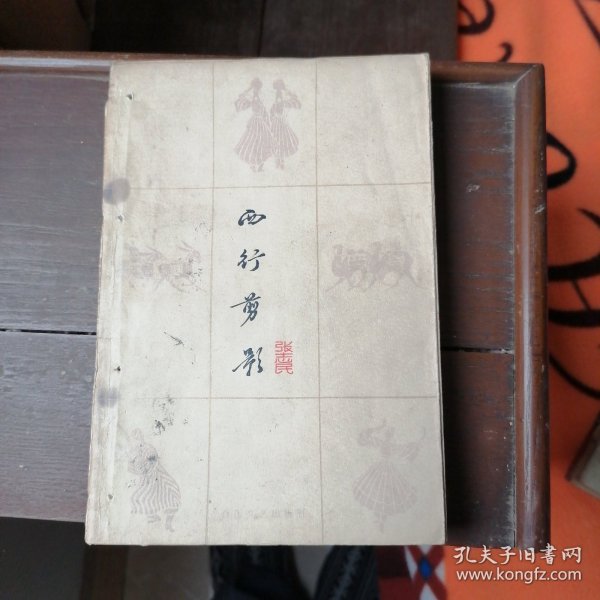 西行剪影
张志民
孔夫子旧书网
www.kongfz.com